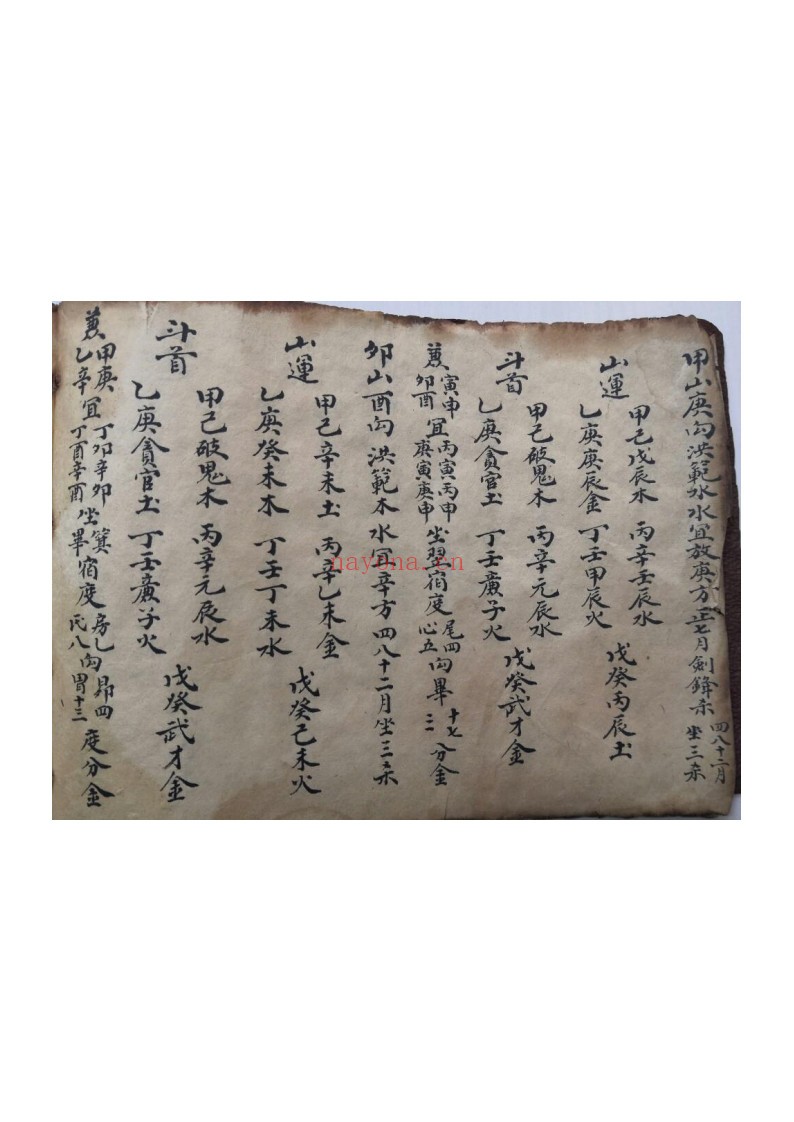 甲山庚向洪範水水宜放庚方正七月劍鋒杀四八十二月坐三杀
山運
甲己戊辰木 丙辛壬辰水
乙庚庚辰金 丁壬甲辰火
戊癸丙辰土
斗首
甲己破鬼木 丙辛元辰水
乙庚貪官土 丁壬廉子火
戊癸武才金
兼寅申卯酉宜丙寅丙申庚寅庚申坐翌宿度尾四心五向畢十七二分金
卯山酉向洪範木水宜辛方四八十二月坐三杀
山運
甲己辛未土 丙辛乙未金
乙庚癸未木 丁壬丁未水
戊癸己未火
斗首
甲己破鬼木 丙辛元辰水
乙庚貪官土 丁壬廉子火
戊癸武才金
兼甲庚乙辛宜丁卯辛卯丁酉辛酉坐箕畢宿度房乚氐八向昴四胃十三度分金
nayona.cn